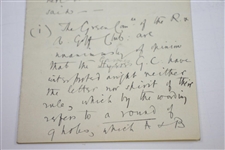 (i) The Green Com" of the R &
A Golf Club are
unanimously of opinion
that the G.C. have
interpreted might neither
the letter nor spirit of their
rule, which by the wording
refers to a round of
9 holes, which R & B